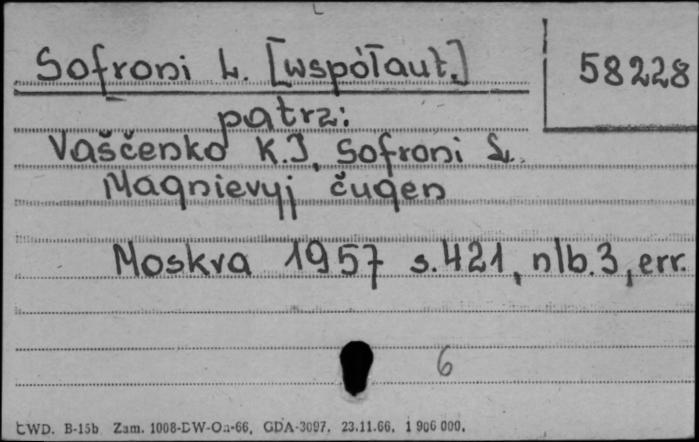 Sofroni L. [współaut.]
58228
patrz:
Vaščenko K.I, Sofroni L.
Magnievyj čugen
Moskva 1957 s.421, nlb.3, err.
6
CWD. B-15b Zam. 1008-DW-Oa-66, GDA-3097, 23.11.66, 1 906 000,